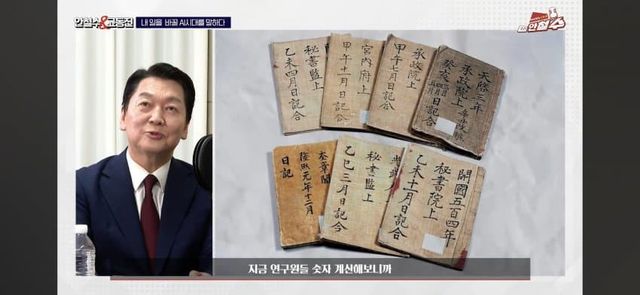 안철수&고동진
내 일을 바꿀 AI시대를 말하다
안철수
秘書監上
乙未四月日記合
宮內府上
甲午十一月日記合
承政院上
甲午七月日記合
天啓三年
承政院上
癸亥
日記合
奎章閣
隆熙元年十二月
日記
秘書監上
乙巳三月日記合
開國五百四年
秘書院上
乙未十一月日記合
지금 연구원들 숫자 계산해보니까